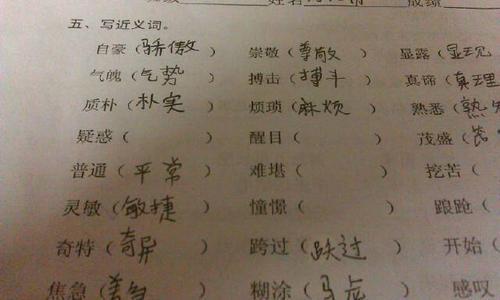 姓名
成绩
五、写近义词。
自豪（骄傲） 崇敬（尊敬） 显露（显现
气魄（气势） 搏击（搏斗） 真谛（真理
质朴（朴实） 烦琐（麻烦） 熟悉（熟
疑惑（ ） 醒目（ ） 茂盛（
普通（平常） 难堪（ ） 挖苦（
灵敏（敏捷） 憧憬（ ） 踉跄（
奇特（奇异） 跨过（跃过） 开始（
焦急（着急 糊涂（马虎 感叹